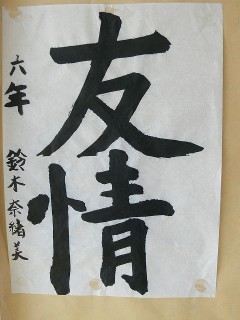 友情
六年 鈴木奈緒美